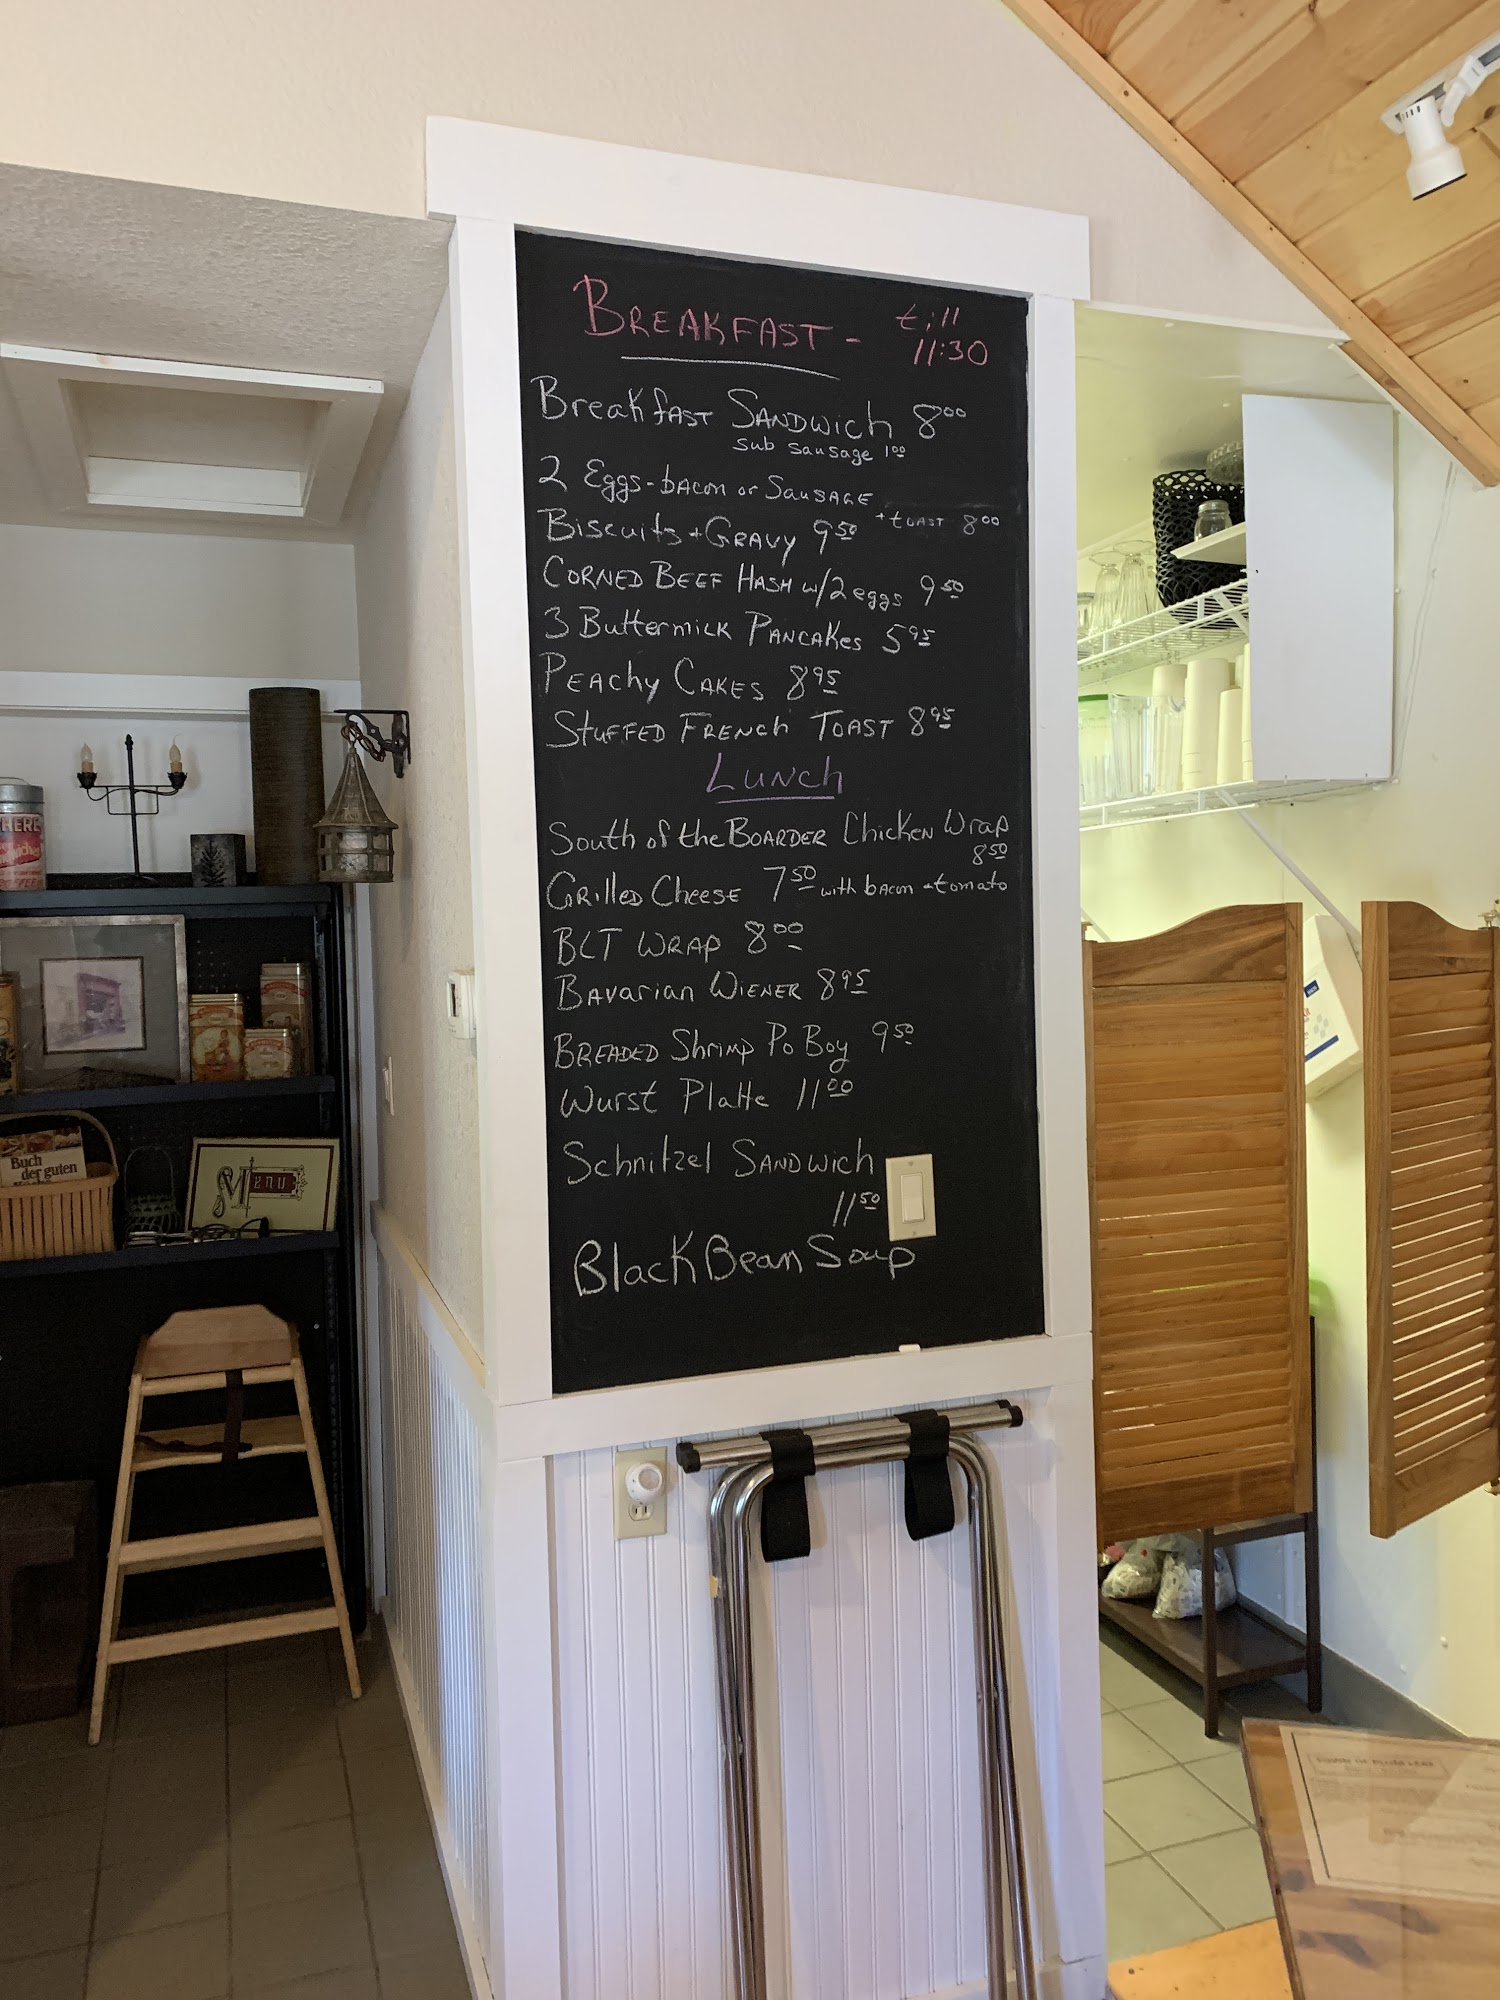 BREAKFAST - till
11:30
Breakfast Sandwich 8⁰⁰
sub sausage 1⁰⁰
2 Eggs - bacon or Sausage
+ toast 8⁰⁰
Biscuits + Gravy 9⁵⁰
Corned Beef Hash w/ 2 eggs 9⁵⁰
3 Buttermilk Pancakes 5⁹⁵
Peachy Cakes 8⁹⁵
Stuffed French Toast 8⁹⁵
Lunch
South of the Boarder Chicken Wrap
8⁵⁰
Grilled Cheese 7⁵⁰ with bacon + tomato
BLT Wrap 8⁰⁰
Bavarian Wiener 8⁹⁵
Breaded Shrimp Po Boy 9⁵⁰
Wurst Platte 11⁰⁰
Schnitzel Sandwich
11⁵⁰
Black Bean Soup
Buch
der guten
Menu